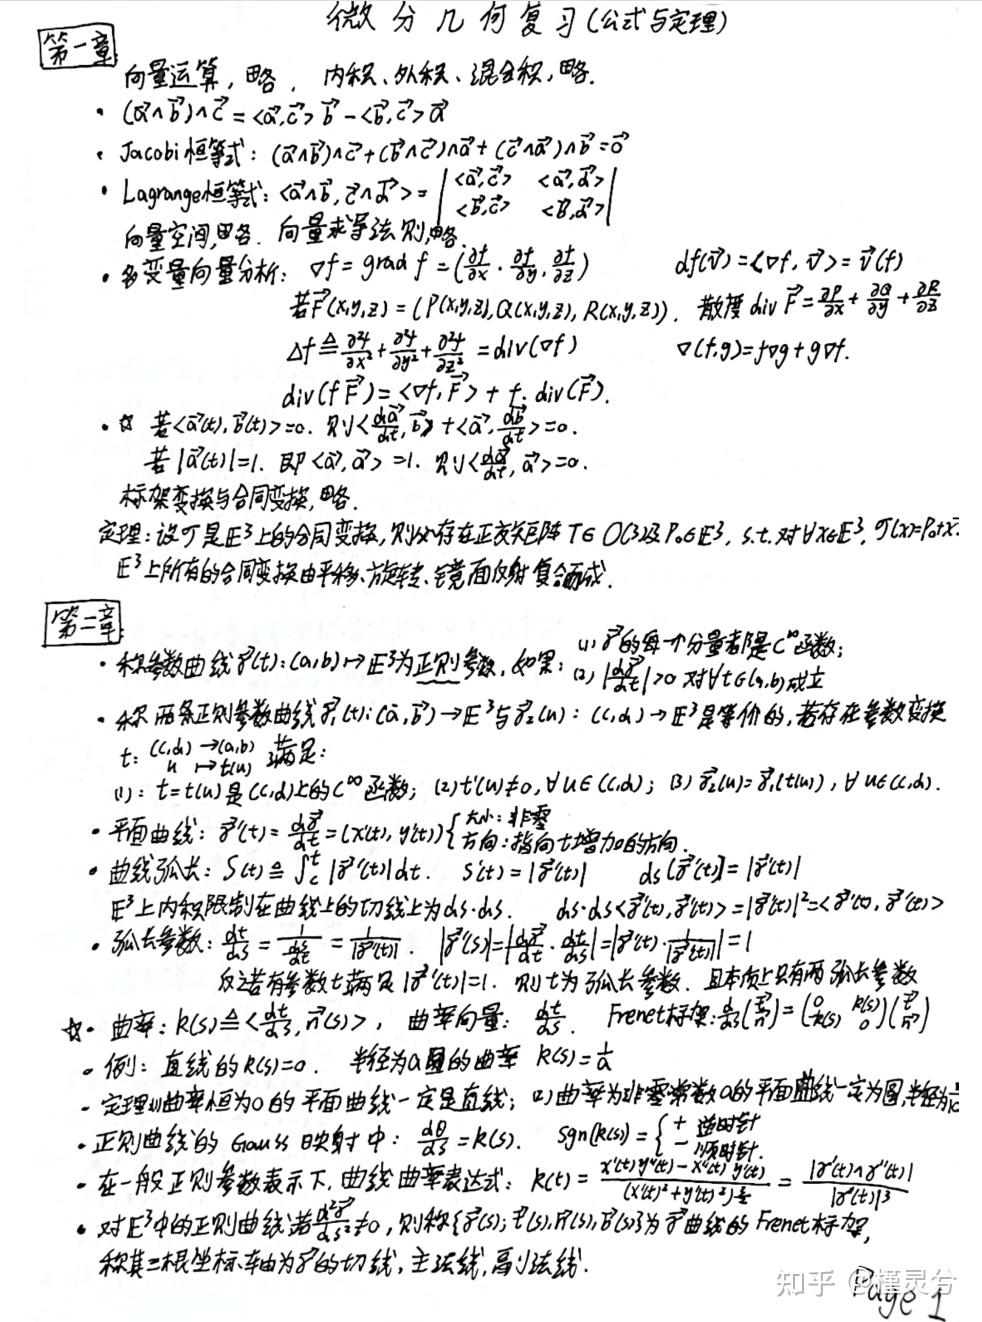 微分几何复习(公式与定理)
第一章:
向量运算,略. 内积、外积、混合积,略.
· (a⃗∧b⃗)∧c⃗=<a⃗,c⃗>b⃗-<b⃗,c⃗>a⃗
· Jacobi恒等式: (a⃗∧b⃗)∧c⃗+(b⃗∧c⃗)∧a⃗+(c⃗∧a⃗)∧b⃗=0⃗
· Lagrange恒等式: <a⃗∧b⃗, c⃗∧d⃗>= | <a⃗,c⃗> <a⃗,d⃗> |
| <b⃗,c⃗> <b⃗,d⃗> |
向量空间,略. 向量求导法则,略.
· 多变量向量分析: ∇f=grad f=(∂f/∂x, ∂f/∂y, ∂f/∂z) df(v⃗)=<∇f, v⃗>=v⃗(f)
若F⃗(x,y,z)=(P(x,y,z),Q(x,y,z),R(x,y,z)). 散度div F⃗=∂P/∂x+∂Q/∂y+∂R/∂z
Δf≜∂²f/∂x²+∂²f/∂y²+∂²f/∂z²=div(∇f) ∇(f,g)=f∇g+g∇f.
div(fF⃗)=<∇f,F⃗>+f.div(F⃗).
·☆ 若<a⃗(t),b⃗(t)>=0. 则<da⃗/dt,b⃗>+<a⃗,db⃗/dt>=0.
若|a⃗(t)|=1. 即<a⃗,a⃗>=1. 则<da⃗/dt,a⃗>=0.
标架变换与合同变换,略.
定理:设𝒯是E³上的合同变换,则必存在正交矩阵T∈O(3)及P₀∈E³, s.t.对∀x∈E³, 𝒯(x)=P₀+x
E³上所有的合同变换由平移、旋转、镜面反射复合而成.
第二章:
· 称参数曲线r⃗(t):(a,b)↦E³为正则参数,如果: (1) r⃗的每一个分量都是C^∞函数;
(2) |dr⃗/dt|>0 对∀t∈(a,b)成立
· 称两条正则参数曲线r⃗₁(t):(a,b)→E³与r⃗₂(u):(c,d)→E³是等价的,若存在参数变换
t: (c,d)→(a,b) 满足:
u ↦t(u)
(1): t=t(u)是(c,d)上的C^∞函数; (2)t'(u)≠0,∀u∈(c,d); (3) r⃗₂(u)=r⃗₁(t(u)), ∀u∈(c,d).
· 平面曲线: r⃗'(t)=dr⃗/dt=(x'(t),y'(t)) { 大小:非零
方向:指向t增加的方向.
· 曲线弧长: S(t)≜∫_c^t |r⃗'(t)|dt. S'(t)=|r⃗'(t)| ds[r⃗'(t)]=|r⃗'(t)|
E³上内积限制在曲线上的切线上为ds·ds. ds·ds<r⃗'(t),r⃗'(t)>=|r⃗'(t)|²=<r⃗'(t),r⃗'(t)>
· 弧长参数: dt/ds=1/(ds/dt)=1/|r⃗'(t)|. |r⃗'(s)|=|dr⃗/dt·dt/ds|=|r⃗'(t)·1/|r⃗'(t)||=1
反过若有参数t满足|r⃗'(t)|=1. 则t为弧长参数. 且本质上只有两弧长参数
☆· 曲率: k(s)≜<dt⃗/ds,n⃗(s)>, 曲率向量: dt⃗/ds. Frenet标架: d/ds(t⃗ n⃗)=(0 k(s) -k(s) 0)(t⃗ n⃗)
· 例: 直线的k(s)=0. 半径为a圆的曲率 k(s)=1/a
· 定理(1)曲率恒为0的平面曲线一定是直线; (2)曲率为非零常数a的平面曲线一定为圆,半径为
· 正则曲线的Gauss映射中: dθ/ds=k(s). sgn(k(s))={ + 逆时针
- 顺时针.
· 在一般正则参数表示下,曲线曲率表达式: k(t)=(x'(t)y''(t)-x''(t)y'(t))/(x'(t)²+y'(t)²)^(3/2)=|r'(t)∧r''(t)|/|r'(t)|³
· 对E³中的正则曲线若d²r⃗/ds²≠0,则称{r⃗(s);t⃗(s),n⃗(s),b⃗(s)}为r⃗曲线的Frenet标架,
称其三根坐标轴为r⃗的切线,主法线,副法线.
知乎 @槿灵兮
Page 1